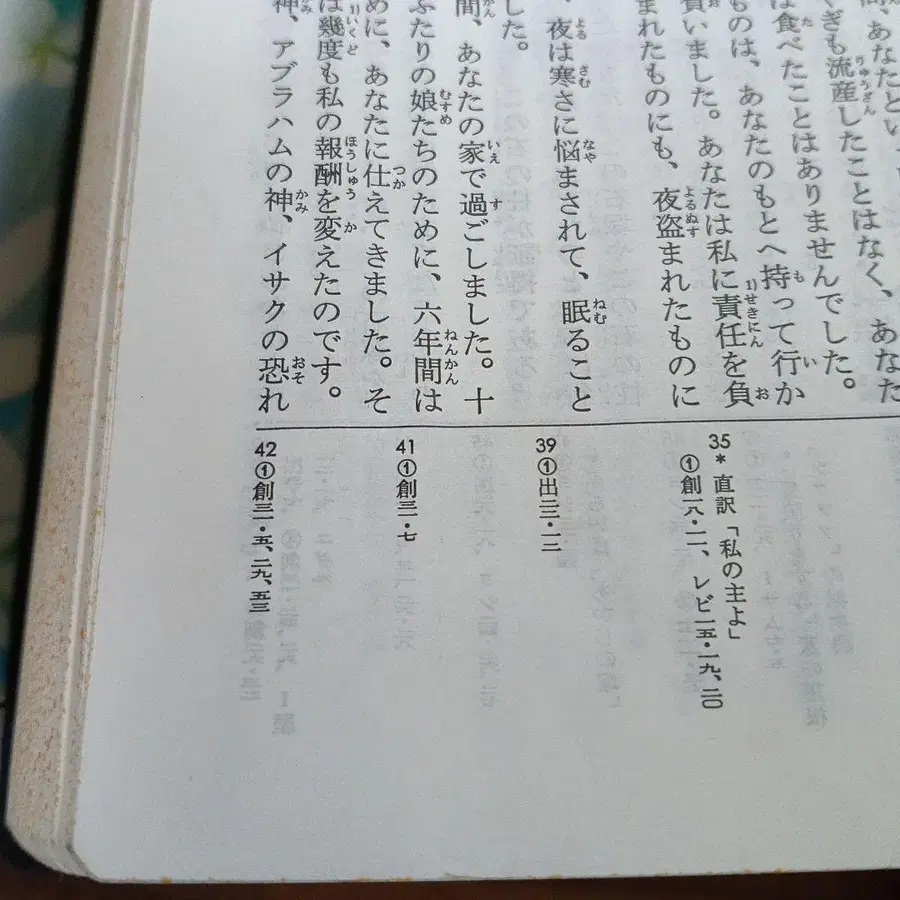 あなたとい
ぎも流産したことはなく、あなた
は食べたことはありませんでした。
ものは、あなたのもとへ持って行か
いました。あなたは私に責任を負
まれたものにも、夜盗まれたものに
、夜は寒さに悩まされて、眠ること
した。
間、あなたの家で過ごしました。十
ふたりの娘たちのために、六年間は
めに、あなたに仕えてきました。そ
は幾度も私の報酬を変えたのです。
神、アブラハムの神、イサクの恐れ
35* 直訳「私の主よ」
①創一八・一一、レビ一五・一九、二〇
39①出二二・一二
41①創三一・七
42①創三一・五、二九、五三